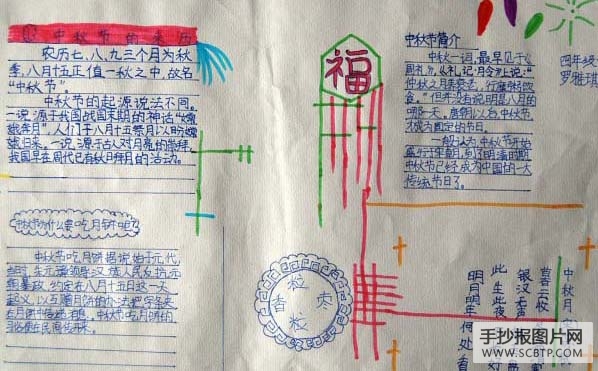 中秋节的来历
农历七、八、九三个月为秋
季,八月十五正值一秋之中,故名
"中秋节"。
中秋节的起源说法不同。
一说源于我国战国末期的神话"嫦
娥奔月",人们于八月十五祭月以盼嫦
娥归来。一说源于古人对月亮的崇拜,
我国早在周代已有秋日拜月的活动。
中秋节为什么要吃月饼呢?
中秋节吃月饼据说始于元代,
当时,朱元璋领导汉族人民反抗元
朝暴政,约定在八月十五日这一天
起义,以互赠月饼的办法把字条夹
在月饼中传递消息,中秋节吃月饼的
习俗便在民间传开来。
福
中秋节简介
中秋一词,最早见于《
周礼》,《礼记·月令》上说:"
仲秋之月养衰老,行糜粥饮
食。"但并没有说明是八月的
哪一天,唐朝以后,中秋节
才成为固定的节日。
一般认为,中秋节开始
盛行于宋朝,到了明清时期,
中秋节已经成为中国的一大
传统节日了。
四年级
罗雅琪
粒
香
中秋月
暮云收
银汉无声
此生此夜
明月明年何处看
手抄报图片网
WWW.SCBTP.COM